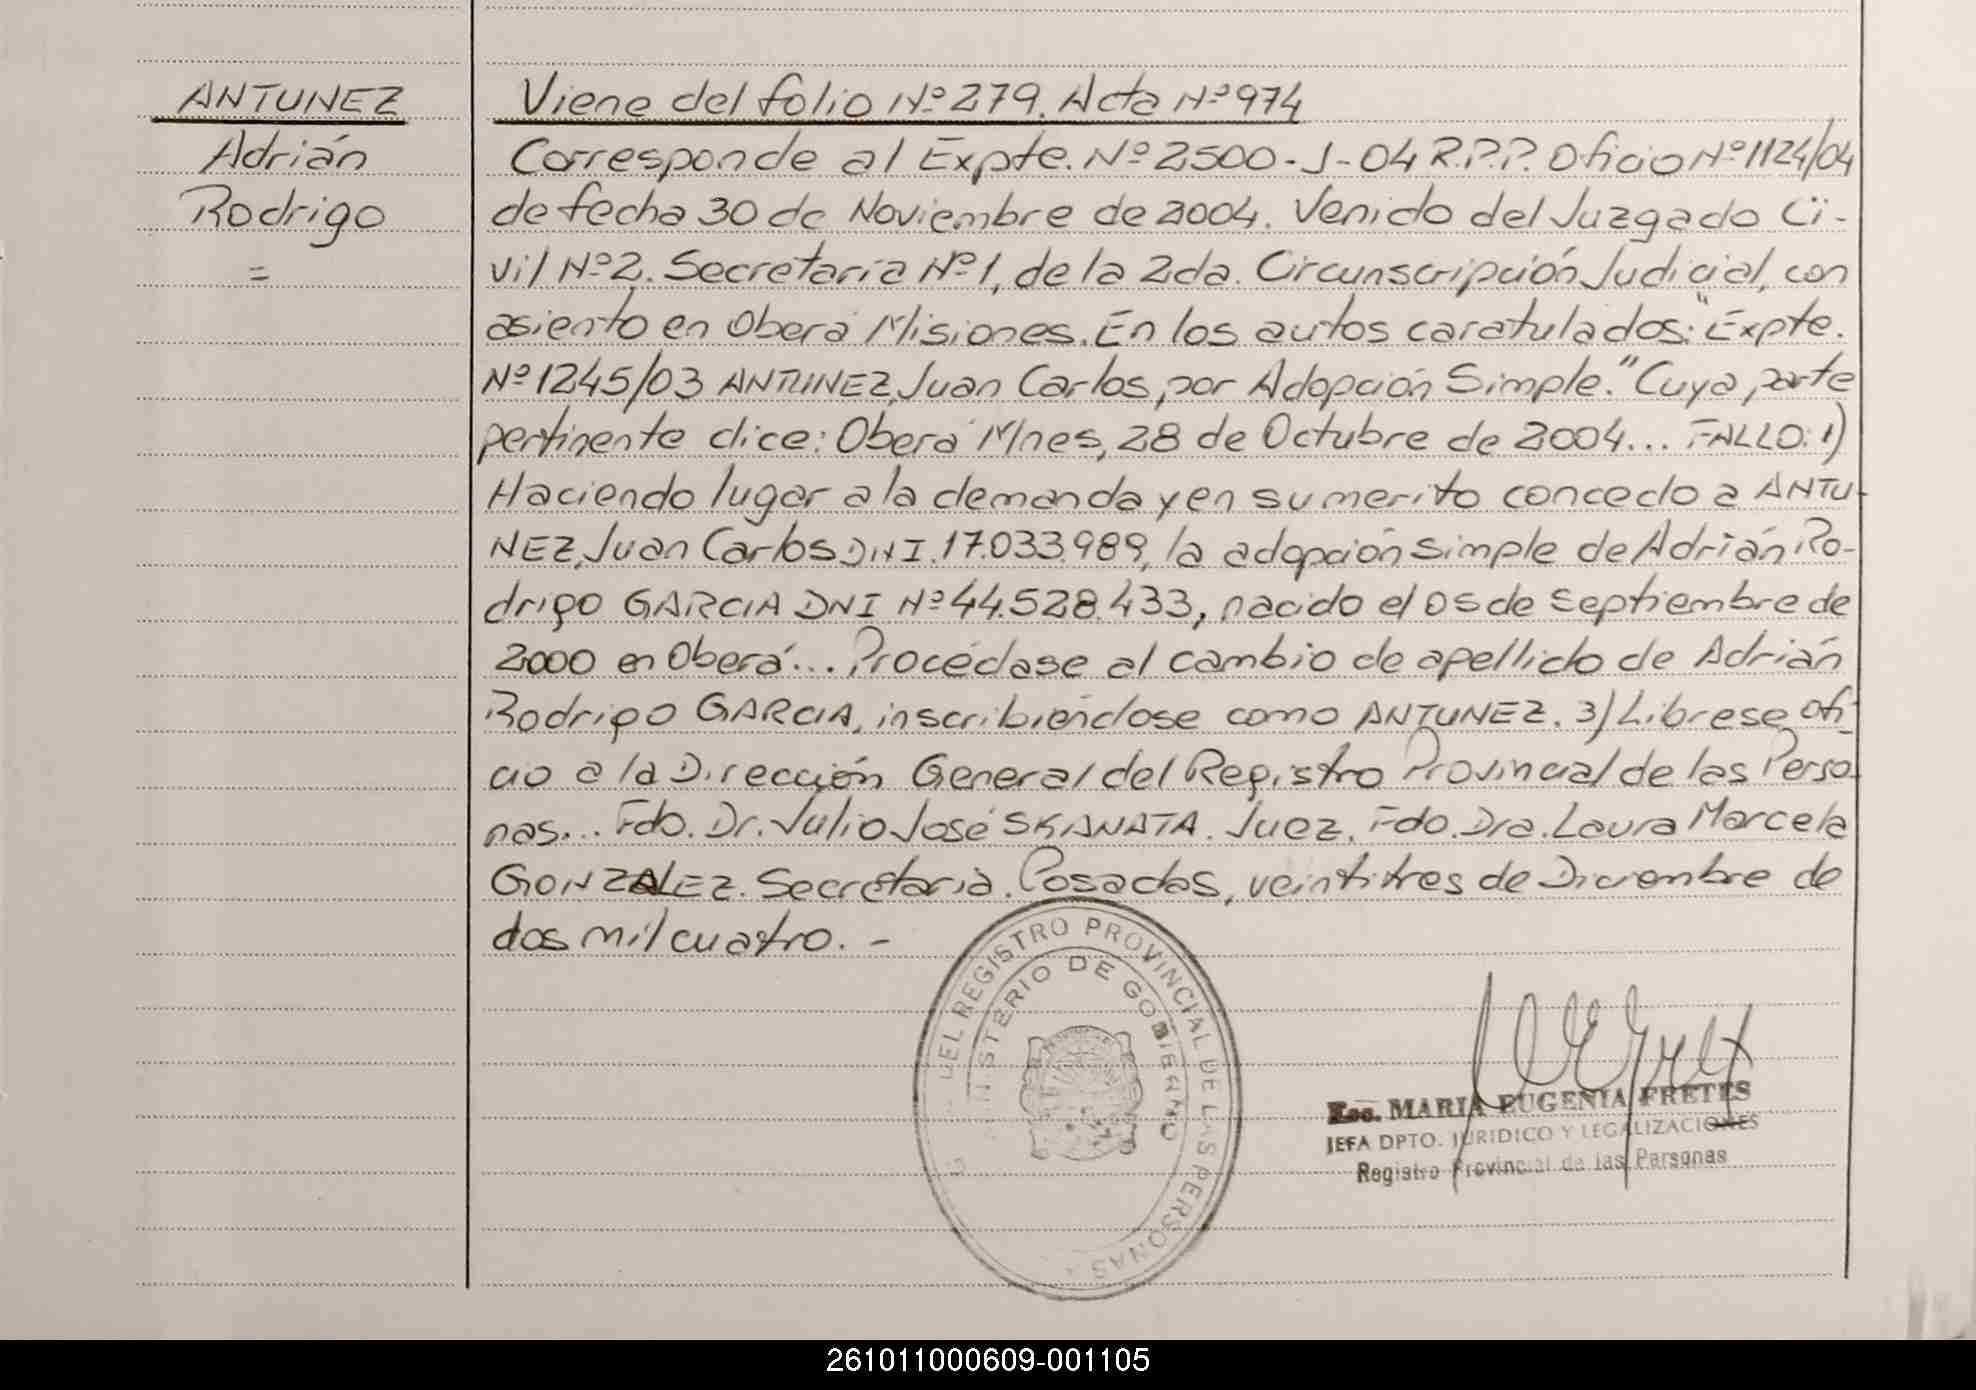 ANTUNEZ
Adrián
Rodrigo
=
Viene del folio Nº 279. Acta Nº 974
Corresponde al Expte. Nº 2500-J-04 R.P.P. Oficio Nº 1124/04
de fecha 30 de Noviembre de 2004. Venido del Juzgado Ci-
vil Nº 2. Secretaria Nº 1, de la 2da. Circunscripción Judicial, con
asiento en Oberá Misiones. En los autos caratulados: "Expte.
Nº 1245/03 ANTUNEZ, Juan Carlos, por Adopción Simple." Cuya parte
pertinente dice: Oberá Mnes, 28 de Octubre de 2004... FALLO: 1)
Haciendo lugar a la demanda y en su merito concedo a ANTU-
NEZ, Juan Carlos DNI. 17.033.989, la adopción simple de Adrián Ro-
drigo GARCIA DNI Nº 44.528.433, nacido el 05 de Septiembre de
2000 en Oberá... Procédase al cambio de apellido de Adrián
Rodrigo GARCIA, inscribiéndose como ANTUNEZ. 3) Librese ofi-
cio a la Dirección General del Registro Provincial de las Perso-
nas... Fdo. Dr. Julio José SKANATA. Juez. Fdo. Dra. Laura Marcela
GONZALEZ. Secretaria. Posadas, veintitres de Diciembre de
dos mil cuatro. -
DEL REGISTRO PROVINCIAL DE LAS PERSONAS
MINISTERIO DE GOBIERNO
Esc. MARIA EUGENIA FRETES
JEFA DPTO. JURIDICO Y LEGALIZACIONES
Registro Provincial de las Personas
261011000609-001105